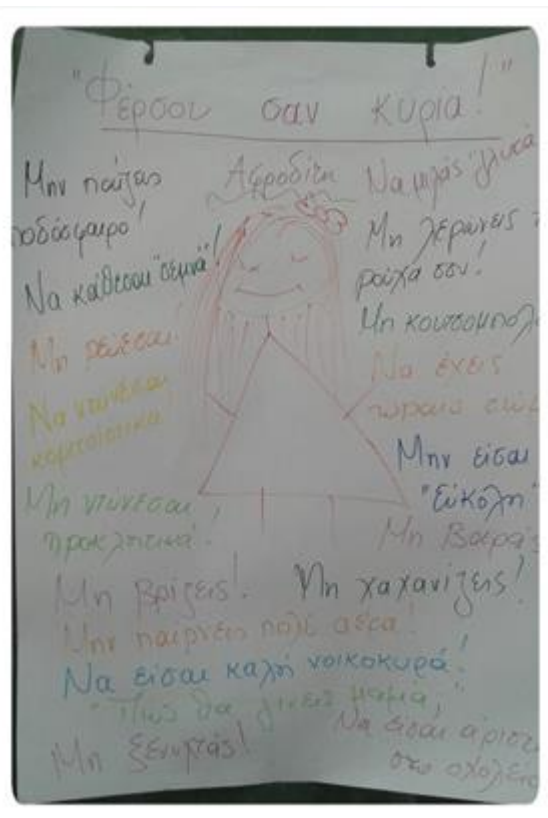 "Φέρσου σαν κυρία!"
Αφροδίτη
Μην παίζεις
ποδόσφαιρο!
Να κάθεσαι "σεμνά"!
Μη ρεύεσαι!
Να ντύνεσαι
κοριτσίστικα
Μη ντύνεσαι
προκλητικά!
Να μιλάς "γλυκά
Μη λερώνεις τ
ρούχα σου!
Μη κουτσομπολ
Να έχεις
ωραίο σώμ
Μην είσαι
"εύκολη"
Μη βαράς
Μη βρίζεις!
Μη χαχανίζεις!
Μην παίρνεις πολύ αέρα!
Να είσαι καλή νοικοκυρά!
"Πώς θα γίνεις μαμά;"
Μη ξενυχτάς!
Να είσαι άριστη
στο σχολείο